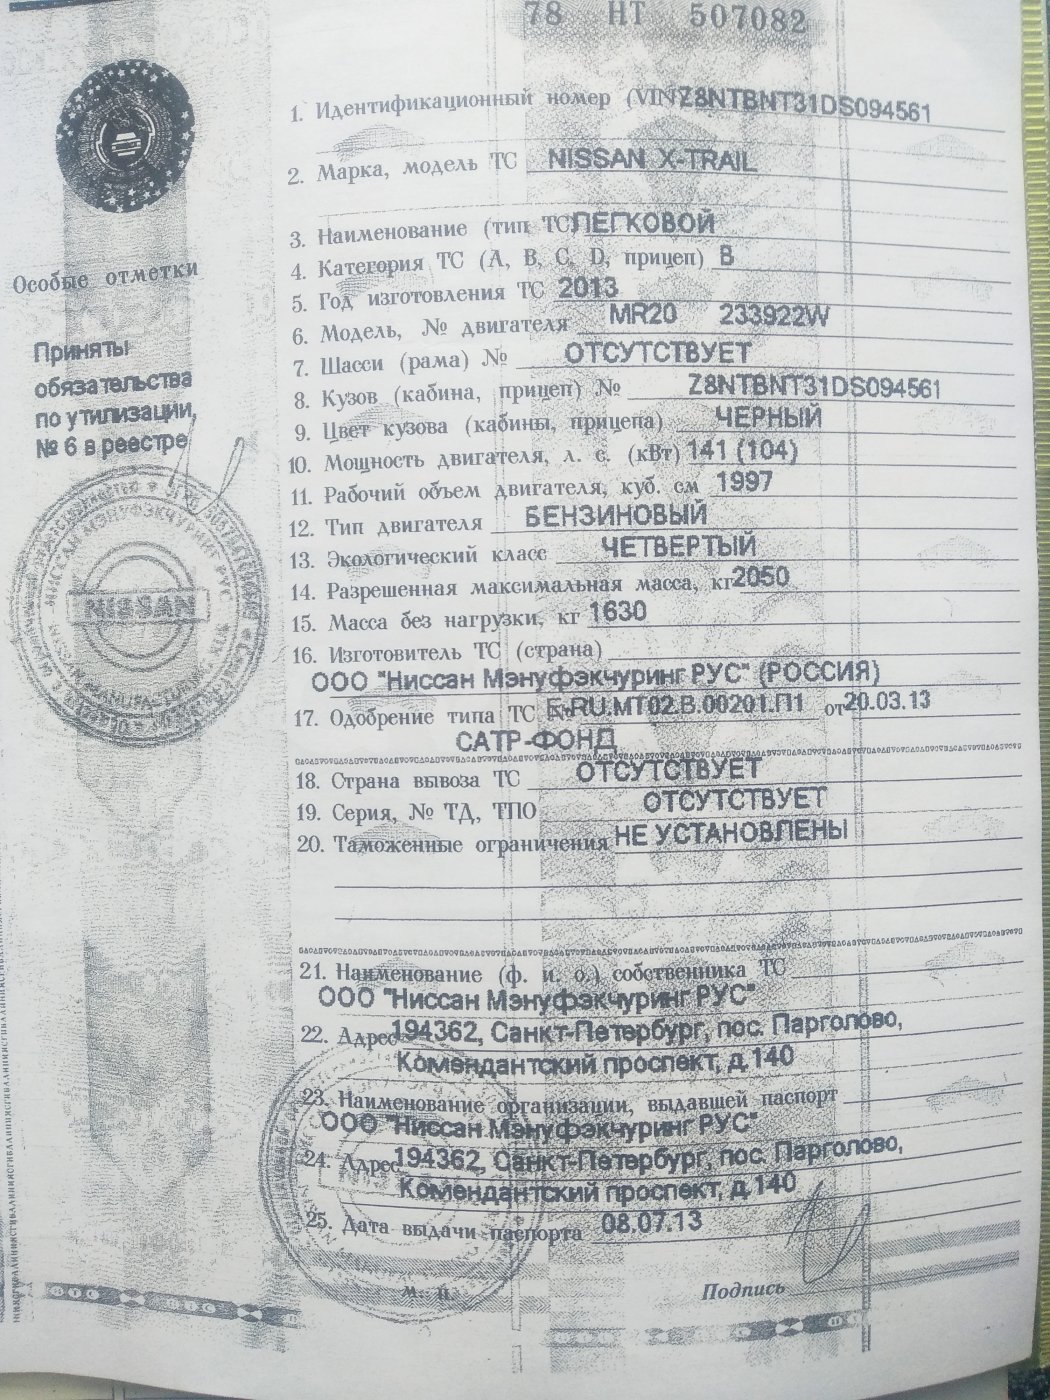 78 НТ 507082
1. Идентификационный номер (VIN) Z8NTBNT31DS094561
2. Марка, модель ТС NISSAN X-TRAIL
3. Наименование (тип ТС) ЛЕГКОВОЙ
4. Категория ТС (A, B, C, D, прицеп) B
5. Год изготовления ТС 2013
6. Модель, № двигателя MR20 233922W
7. Шасси (рама) № ОТСУТСТВУЕТ
8. Кузов (кабина, прицеп) № Z8NTBNT31DS094561
9. Цвет кузова (кабины, прицепа) ЧЕРНЫЙ
10. Мощность двигателя, л. с. (кВт) 141 (104)
11. Рабочий объем двигателя, куб. см 1997
12. Тип двигателя БЕНЗИНОВЫЙ
13. Экологический класс ЧЕТВЕРТЫЙ
14. Разрешенная максимальная масса, кг 2050
15. Масса без нагрузки, кг 1630
16. Изготовитель ТС (страна)
ООО "Ниссан Мэнуфэкчуринг РУС" (РОССИЯ)
17. Одобрение типа ТС № E-RU.MT02.B.00201.П1 от 20.03.13
САТР-ФОНД
18. Страна вывоза ТС ОТСУТСТВУЕТ
19. Серия, № ТД, ТПО ОТСУТСТВУЕТ
20. Таможенные ограничения НЕ УСТАНОВЛЕНЫ
21. Наименование (ф. и. о.) собственника ТС
ООО "Ниссан Мэнуфэкчуринг РУС"
22. Адрес 194362, Санкт-Петербург, пос. Парголово,
Комендантский проспект, д.140
23. Наименование организации, выдавшей паспорт
ООО "Ниссан Мэнуфэкчуринг РУС"
24. Адрес 194362, Санкт-Петербург, пос. Парголово,
Комендантский проспект, д.140
25. Дата выдачи паспорта 08.07.13
М. П.
Подпись
Особые отметки
Приняты
обязательства
по утилизации,
№ 6 в реестре
NISSAN